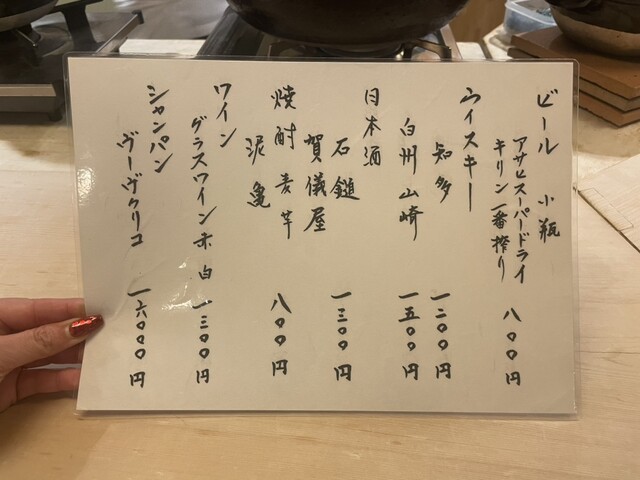 ビール 小瓶
アサヒスーパードライ
キリン一番搾り 八〇〇円
ウイスキー
知多 一二〇〇円
白州 山崎 一五〇〇円
日本酒
石鎚
賀儀屋 一三〇〇円
焼酎 麦 芋 八〇〇円
泥亀
ワイン
グラスワイン 赤 白 一三〇〇円
シャンパン
ヴーヴクリコ 一六〇〇〇円